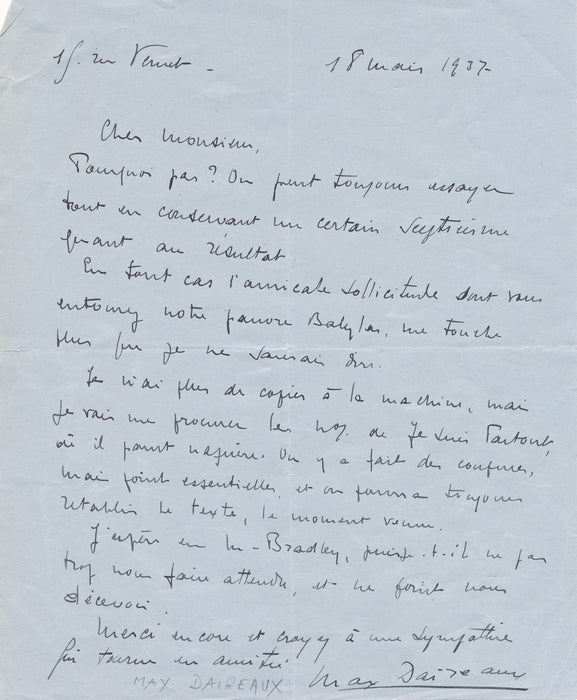 15. rue Vernet - 18 mars 1937
Cher Monsieur,
Pourquoi pas? On peut toujours essayer
tout en conservant un certain scepticisme
quant au résultat.
En tout cas l'amicale sollicitude dont vous
entourez notre pauvre Babylas, me touche
plus que je ne saurais dire.
Je n'ai plus de copies à la machine, mais
je vais me procurer les nos. de Je Suis Partout,
où il parut naguère. On y a fait des coupures,
mais point essentielles, et on pourra toujours
rétablir le texte, le moment venu.
J'espère en M. Bradley, puisse-t-il ne pas
trop nous faire attendre, et ne point nous
décevoir.
Merci encore et croyez à une sympathie
qui tourne en amitié
Max Daireaux
MAX DAIREAUX